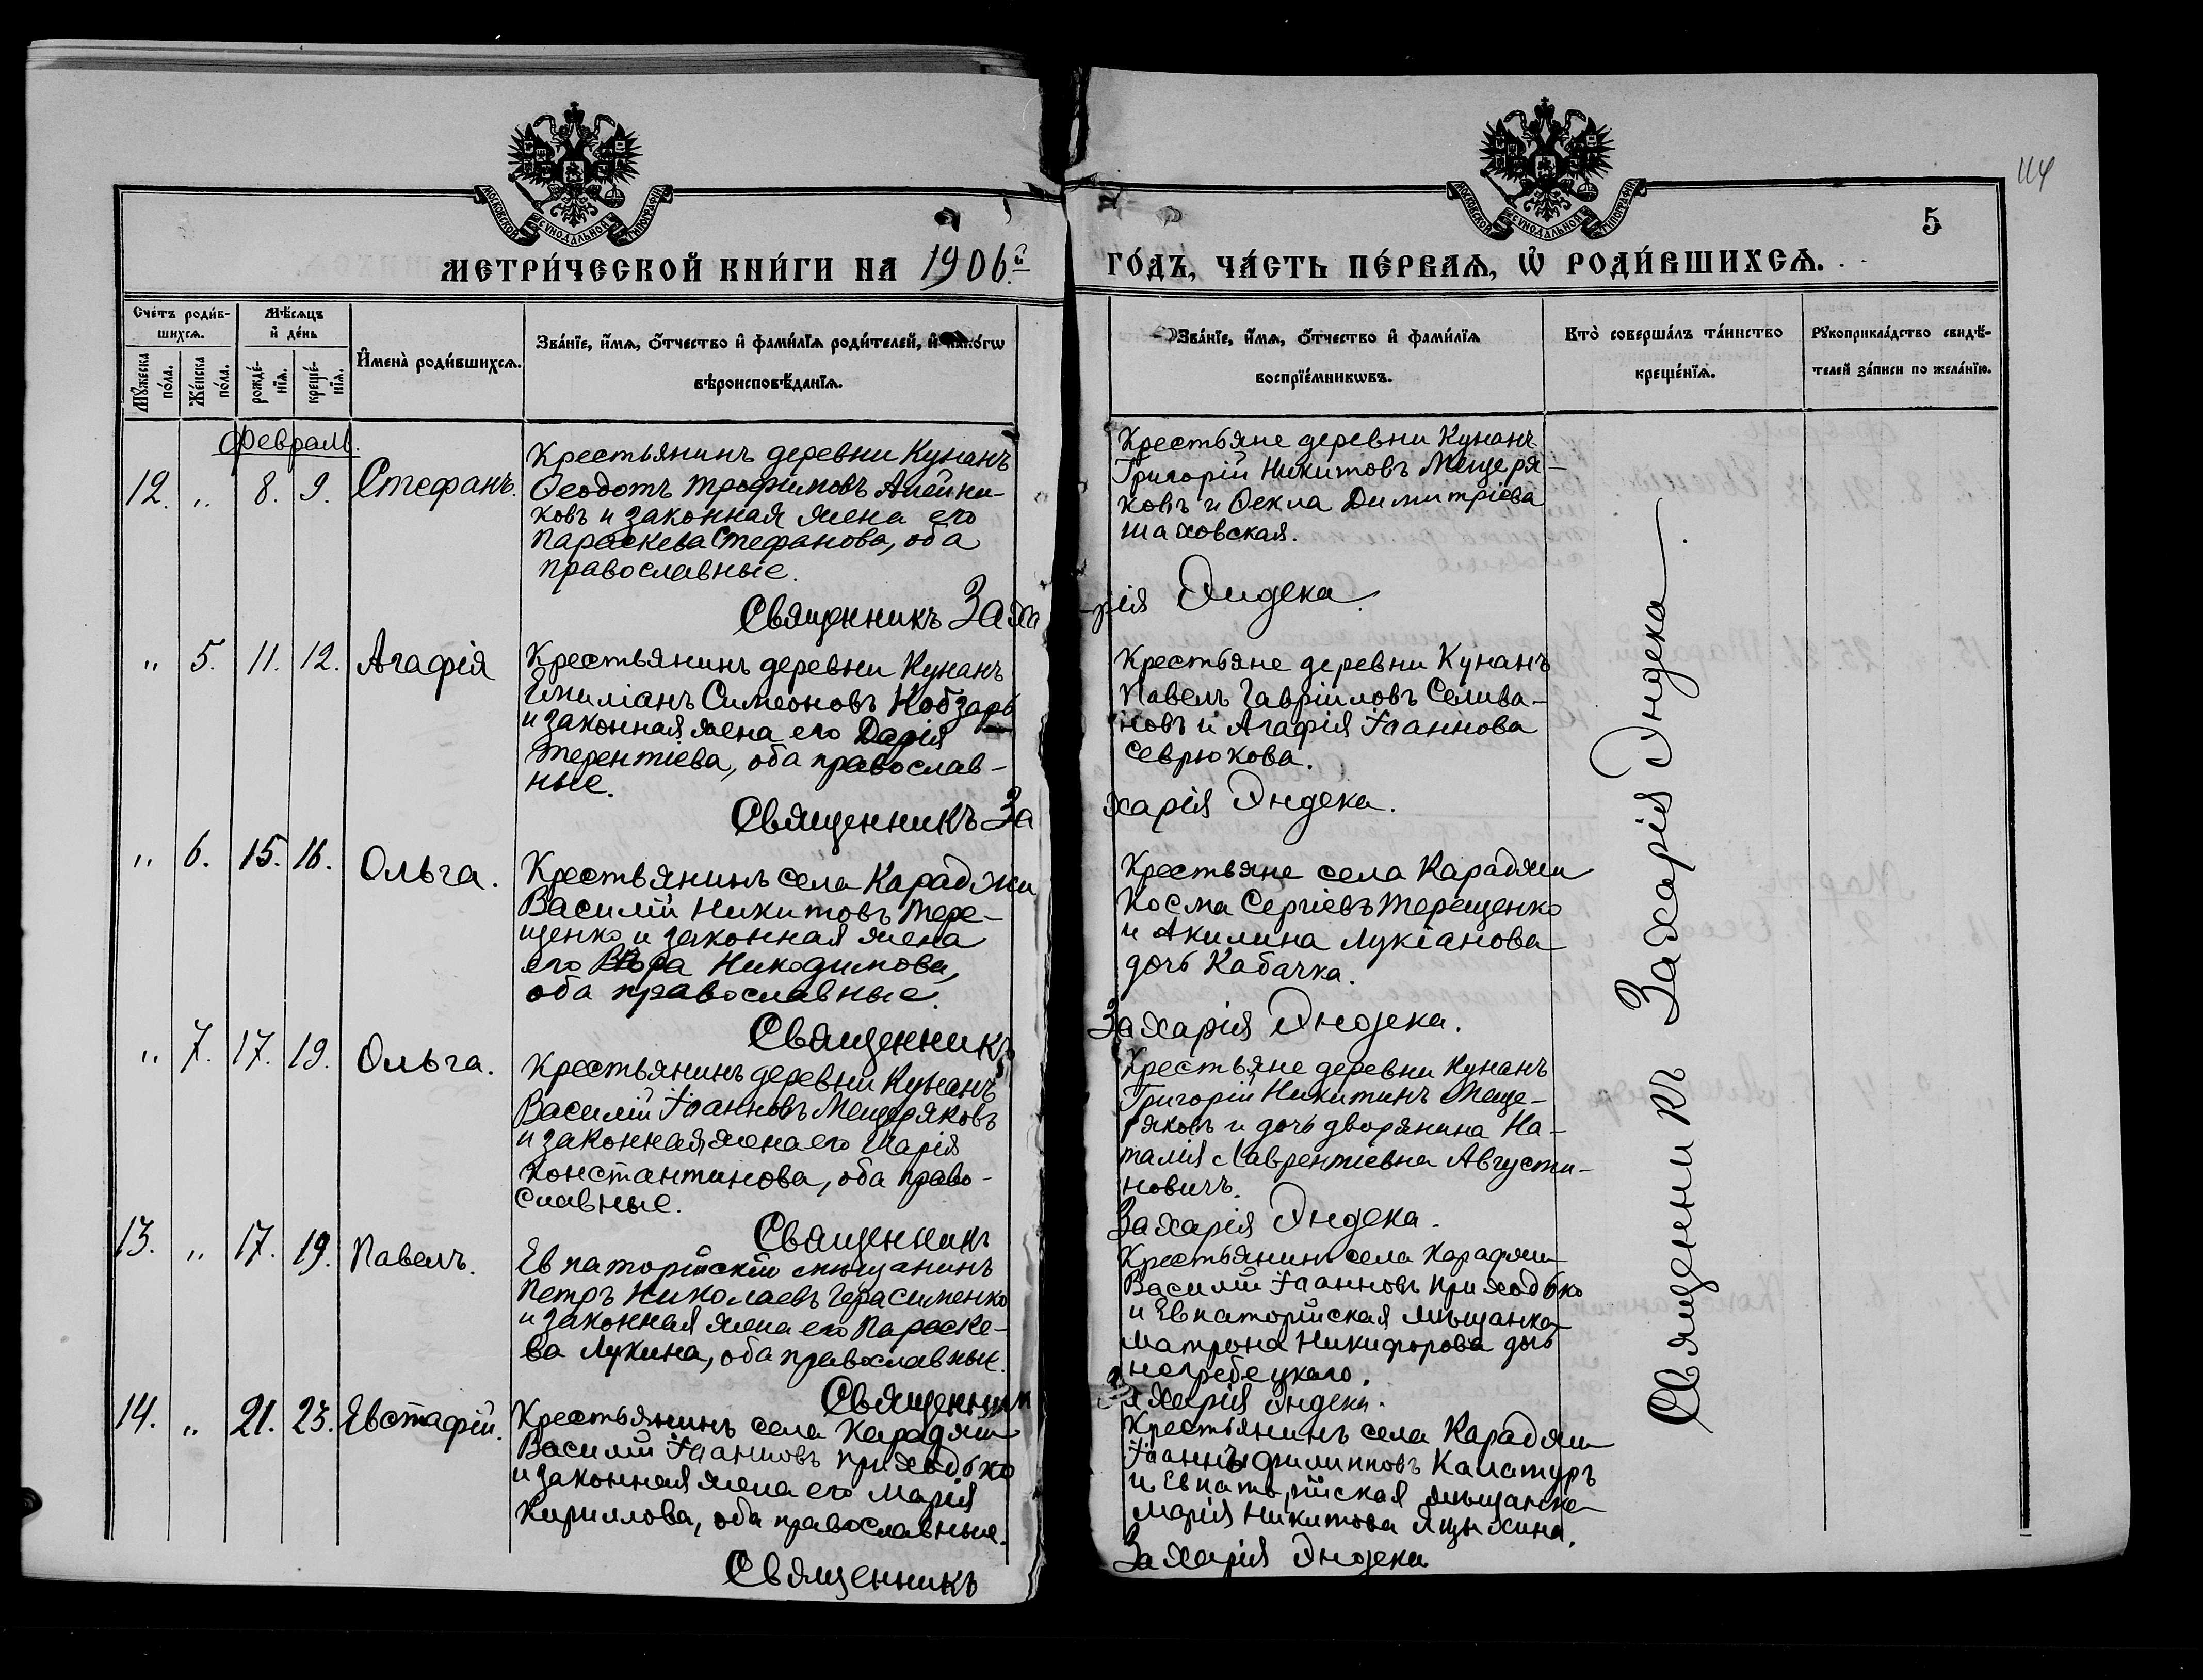 114
МОСКОВСКОЙ СѴНОДАЛЬНОЙ ТИПОГРАФІИ
МОСКОВСКОЙ СѴНОДАЛЬНОЙ ТИПОГРАФІИ
5
МЕТРИ́ЧЕСКОЙ КНИ́ГИ НА 1906й
ГО́ДЪ, ЧА́СТЬ ПЕ́РВАѦ, Ѡ҆ РОДИ́ВШИХСѦ.
Сче́тъ роди́в-
шихсѧ.
Мꙋ́жеска по́ла.
Же́нска по́ла.
Мѣ́сѧцъ и҆ де́нь
рожде́-нїѧ.
креще́-нїѧ.
И҆мена̀ роди́вшихсѧ.
Зва́нїе, и҆́мѧ, ѻ҆́тчество и҆ фами́лїѧ роди́телей, и҆ како́гѡ
вѣроисповѣ́данїѧ.
Зва́нїе, и҆́мѧ, ѻ҆́тчество и҆ фами́лїѧ
воспрїе́мникѡвъ.
Кто̀ соверша́лъ та́инство
креще́нїѧ.
Рꙋкоприкла́дство свидѣ́-
телей за́писи по жела́нїю.
Февраль.
12. " 8. 9. Стефанъ.
Крестьянинъ деревни Кунанъ
Ѳеодотъ Трофимовъ Алейни-
ковъ и законная жена его
Параскева Стефанова, оба
православные.
Крестьяне деревни Кунанъ
Григорій Никитовъ Мещеря-
ковъ и Ѳекла Димитріева
Шаховская.
Священникъ Заха
-рія Эндека.
" 5. 11. 12. Агафія
Крестьянинъ деревни Кунанъ
Емиліанъ Симеоновъ Кобзарь
и законная жена его Дарія
Терентіева, оба православ-
ные.
Крестьяне деревни Кунанъ
Павелъ Гавріиловъ Селива-
новъ и Агафія Іоаннова
Севрюкова.
Священникъ За
харія Эндека.
" 6. 15. 16. Ольга.
Крестьянинъ села Караджи
Василій Никитовъ Тере-
щенко и законная жена
его Вѣра Никодимова,
оба православные.
Крестьяне села Караджи
Косма Сергіевъ Терещенко
и Акилина Лукіанова
дочь Кабачка.
Священникъ
Захарія Эндека.
" 7. 17. 19. Ольга.
Крестьянинъ деревни Кунанъ
Василій Іоанновъ Мещеряковъ
и законная жена его Марія
Константинова, оба право-
славные.
Крестьяне деревни Кунанъ
Григорій Никитинъ Меще-
ряковъ и дочь дворянина На-
талія Лаврентіевна Августи-
новичъ.
Священникъ
Захарія Эндека.
13. " 17. 19. Павелъ.
Евпаторійскій мѣщанинъ
Петръ Николаевъ Герасименко
и законная жена его Параске-
ва Лукина, оба православные.
Крестьянинъ села Караджи
Василій Іоанновъ Приходько
и Евпаторійская мѣщанка
Матрона Никифорова дочь
Негребецкаго.
Священник
Захарія Эндека.
14. " 21. 23. Евстафій.
Крестьянинъ села Караджи
Василій Іоанновъ Приходько
и законная жена его Марія
Кириллова, оба православные.
Крестьянинъ села Караджи
Іоаннъ Филипповъ Калатуръ
и Евпаторійская мѣщанка
Марія Никитова Яцыхина.
Священникъ
Захарія Эндека
Священникъ Захарія Эндека.